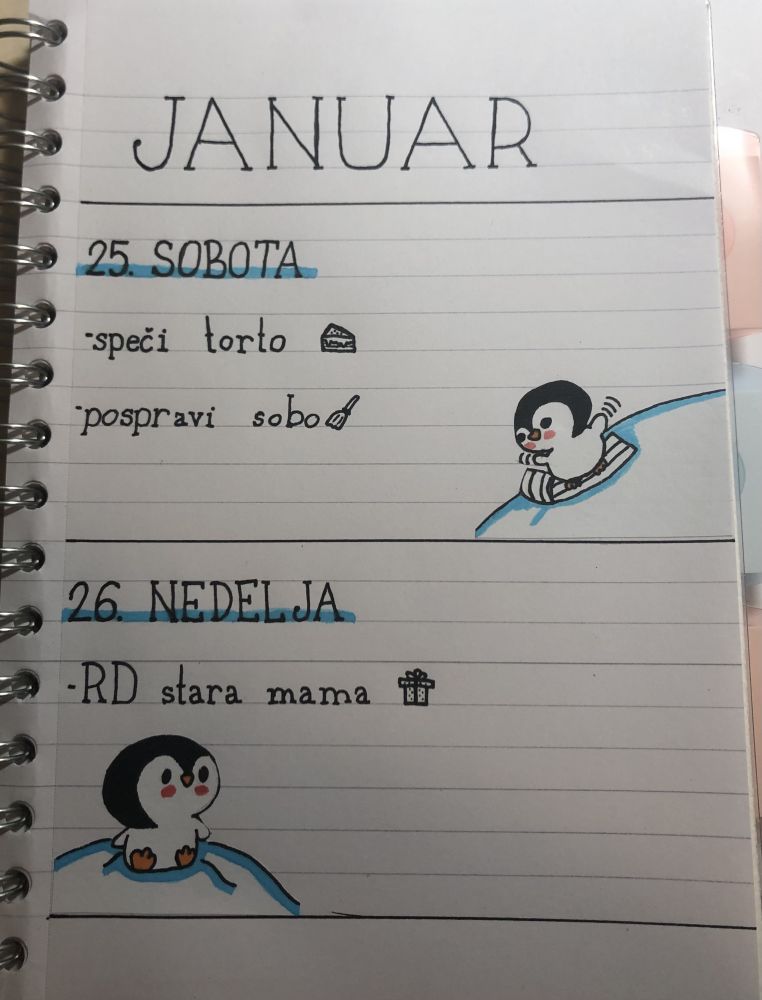 JANUAR
25. SOBOTA
-speči torto
-pospravi sobo
26. NEDELJA
-RD stara mama